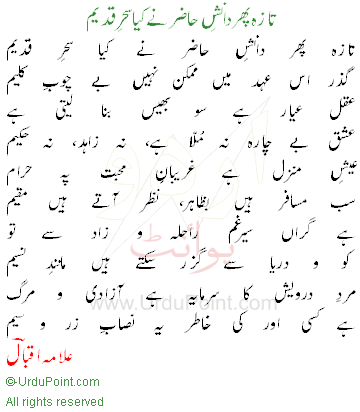 تازہ پھر دانشِ حاضر نے کیا سحرِ قدیم
تازہ پھر دانشِ حاضر نے کیا سحرِ قدیم
گذر اس عہد میں ممکن نہیں بے چوبِ کلیم
عقل عیار ہے سو بھیس بنا لیتی ہے
عشق بے چارہ نہ مُلّا ہے، نہ زاہد، نہ حکیم
عیشِ منزل ہے غریبانِ محبت پہ حرام
سب مسافر ہیں بظاہر، نظر آتے ہیں مقیم
ہے گراں سیر غم راحلہ و زاد سے تو
کوہ و دریا سے گزر سکتے ہیں مانندِ نسیم
مردِ درویش کا سرمایہ ہے آزادی و مرگ
ہے کسی اور کی خاطر یہ نصابِ زر و سیم
علامہ اقبالؔ
اردو پوائنٹ
www.UrduPoint.com
© UrduPoint.com
All rights reserved